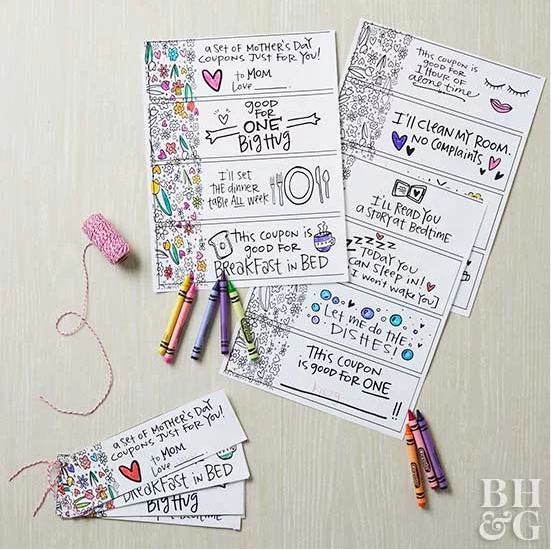 a SET of MOTHER'S DAY
COUPONS JUST FOR YOU!
to MOM
Love
GOOD
FOR
ONE
BIG HUG
I'll SET
THE dinner
table ALL week
THIS COUPON is
good FOR
BREAKFAST in BED
THIS COUPON is
GOOD FOR
1 HOUR OF
alone time
I'll CLEAN MY ROOM.
NO COMPLAINTS
I'LL READ YOU
a STORY at BEDTIME
zzzz zzzz
TODAY YOU
CAN SLEEP IN!
I won't WAKE YOU
Let me do the
DISHES!
THIS COUPON
is GOOD FOR ONE
!!
a SET of MOTHER'S DAY
COUPONS JUST FOR YOU!
to MOM
Love
BREAKFAST in BED
BIG HUG
BEDTIME
BH
&G